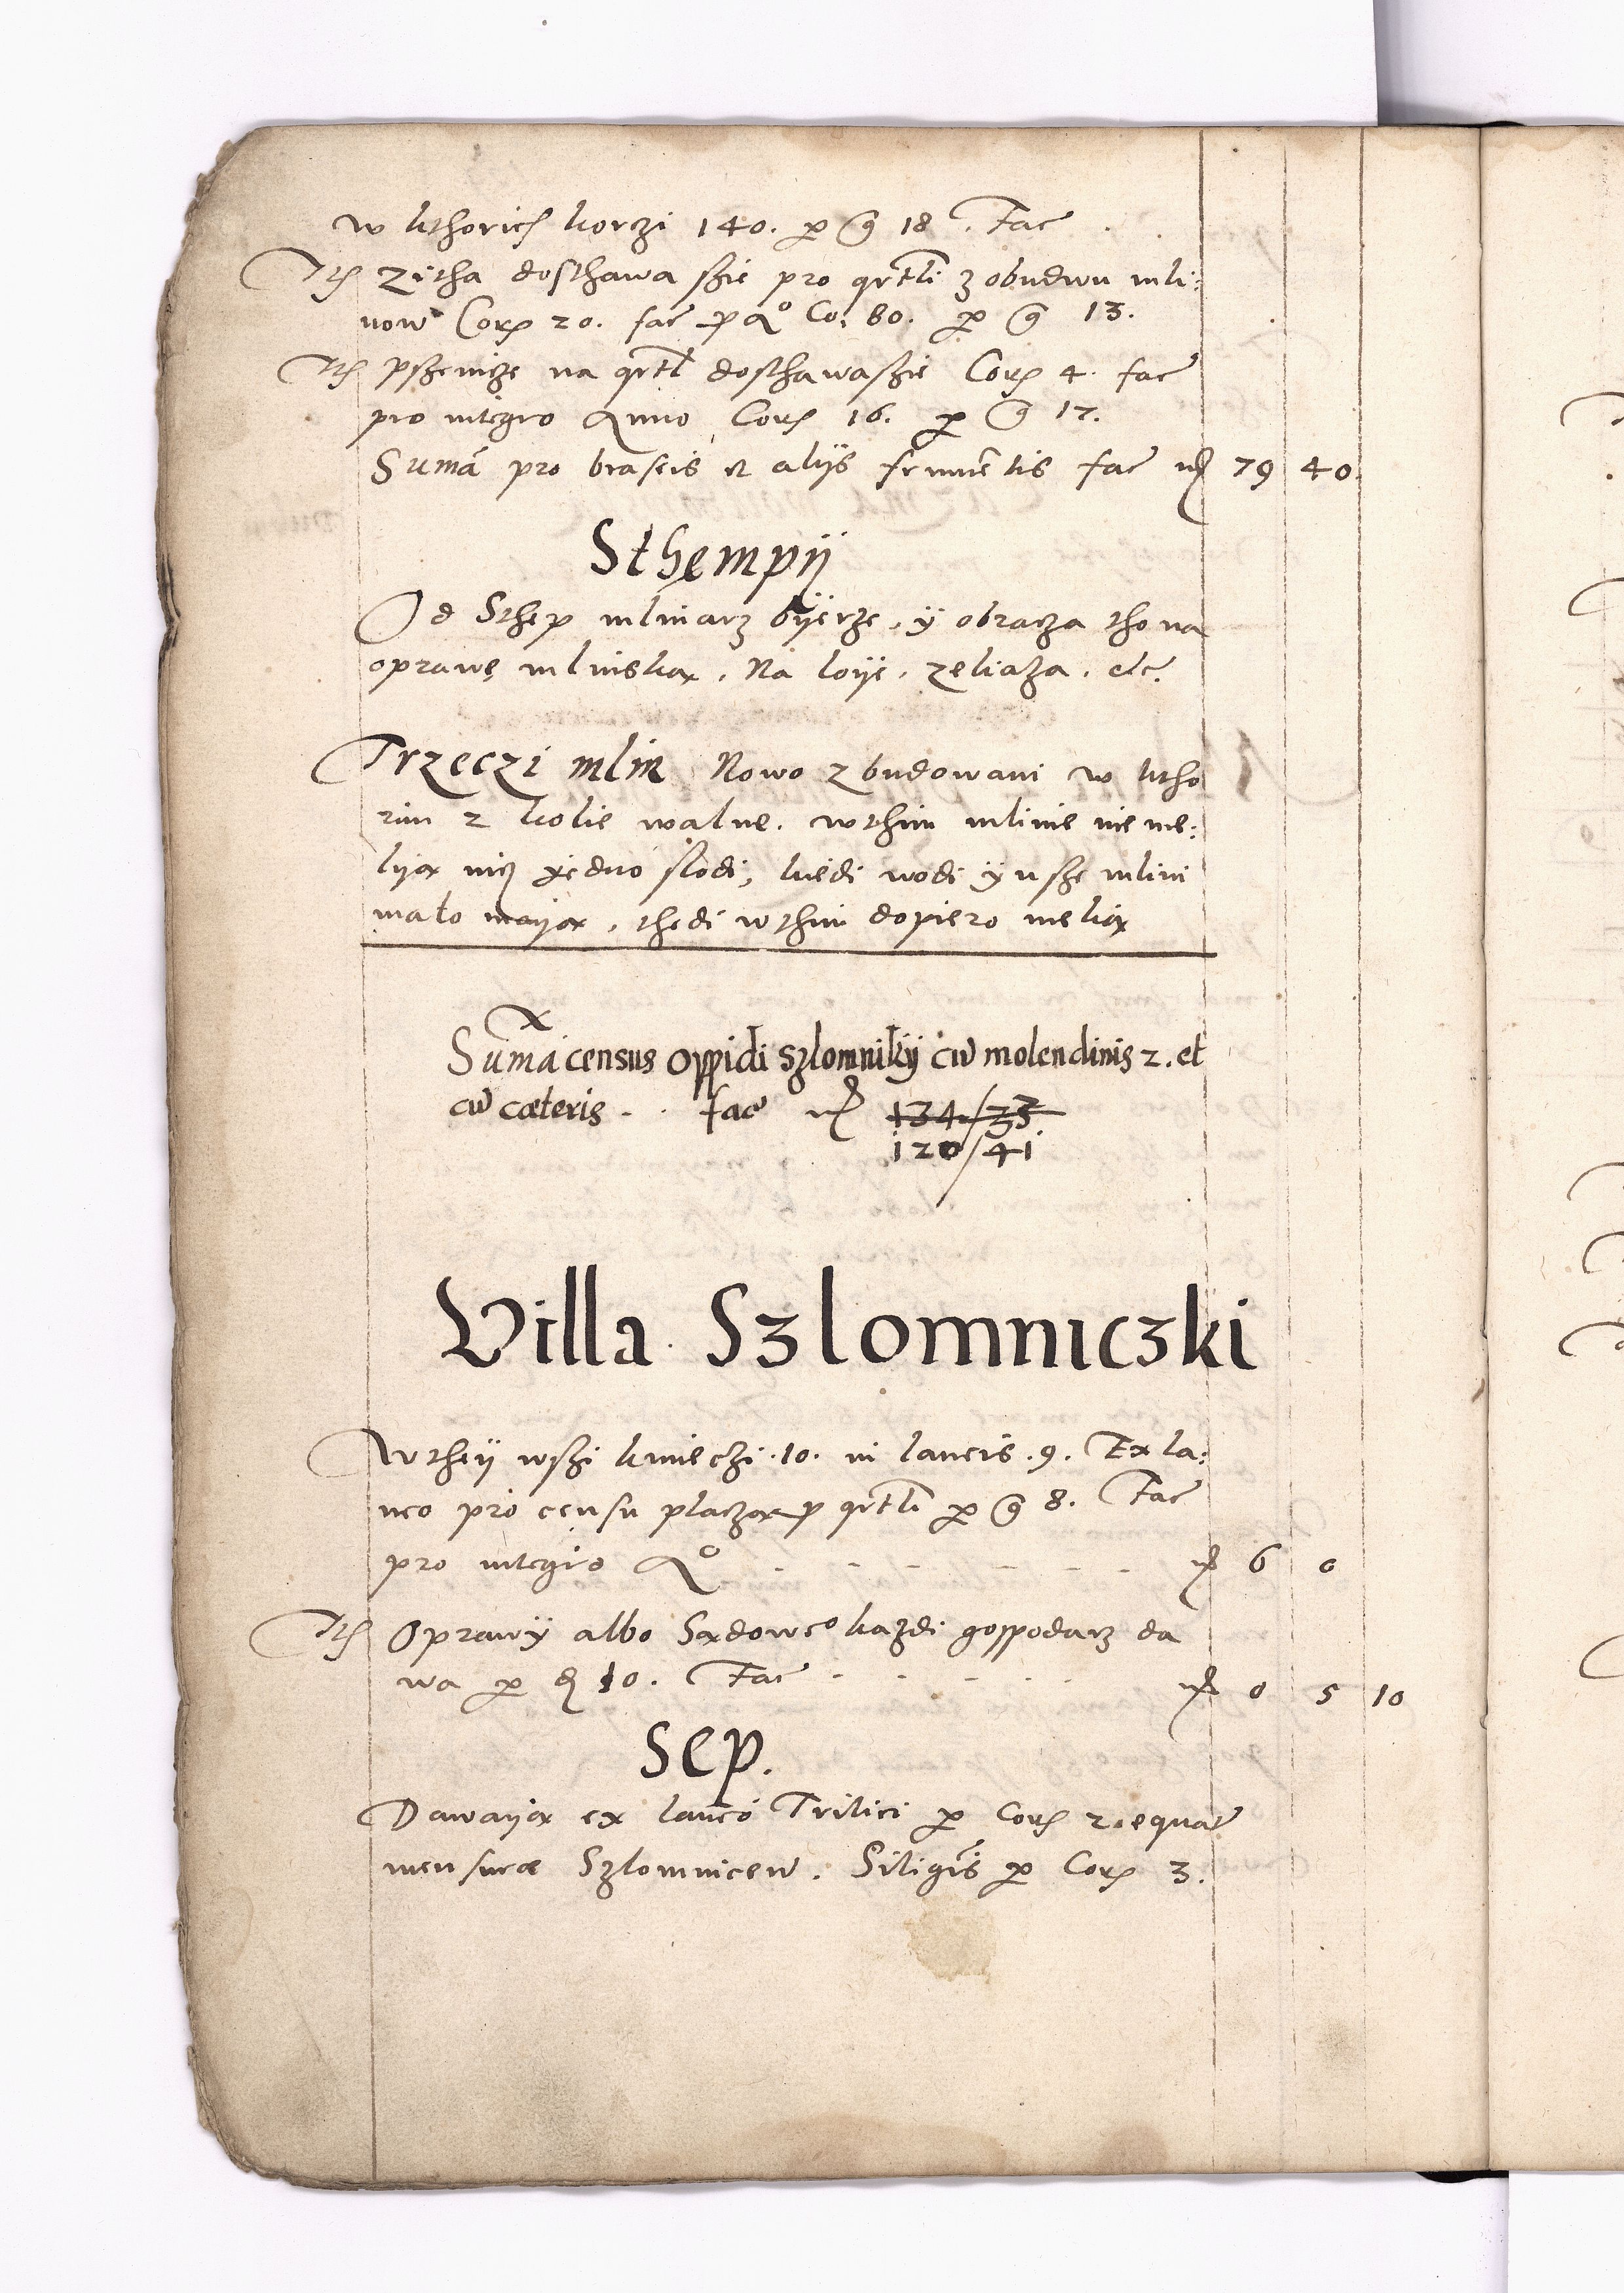 w kthorich korczi 140. per g 18. Fac
Itē zitha dosthawa szie pro qrtli z obudwu mli:
now Cor 20. fac p Ao Co. 80. per g 13.
Itē pszenicze na qrtl dosthawa szie Cor 4. fac
pro integro Anno Cor 16. per g 17.
Sumā pro braseis et alys frumētis fac m 79 40.
Sthęmpy
Od Sthęp mlinarz byerze, y obracza tho na
oprawę mlinskąx. Na loye. zeliaza. etc.
Trzeczi mlin Nowo zbudowani w ktho
rim 2 kolie walne. w thim mlinie nie me:
lyą nicz yedno slodi, kiedi wodi ynsze mlini
mało mayą, thedi w thim dopiero melią
Suma census oppidi Szlomniky cū molendinis 2. et
cū cæteris . . fac m 134/33
120/41
Villa Szlomniczki
W they wszi kmieczi .10. in laneis .9. Ex la:
neo pro censu placzą p qrtli per g 8. Fac
pro integro Ao m 6 0
Itē Oprawy albo Sądoweo kazdi gospodarz da
wa per d 10. Fac m 0 5 10
Sep.
Dawayą ex laneo Tritici per Cor 2. equat
mensuræ Szlomnicen. Siliginis per Cor 3.